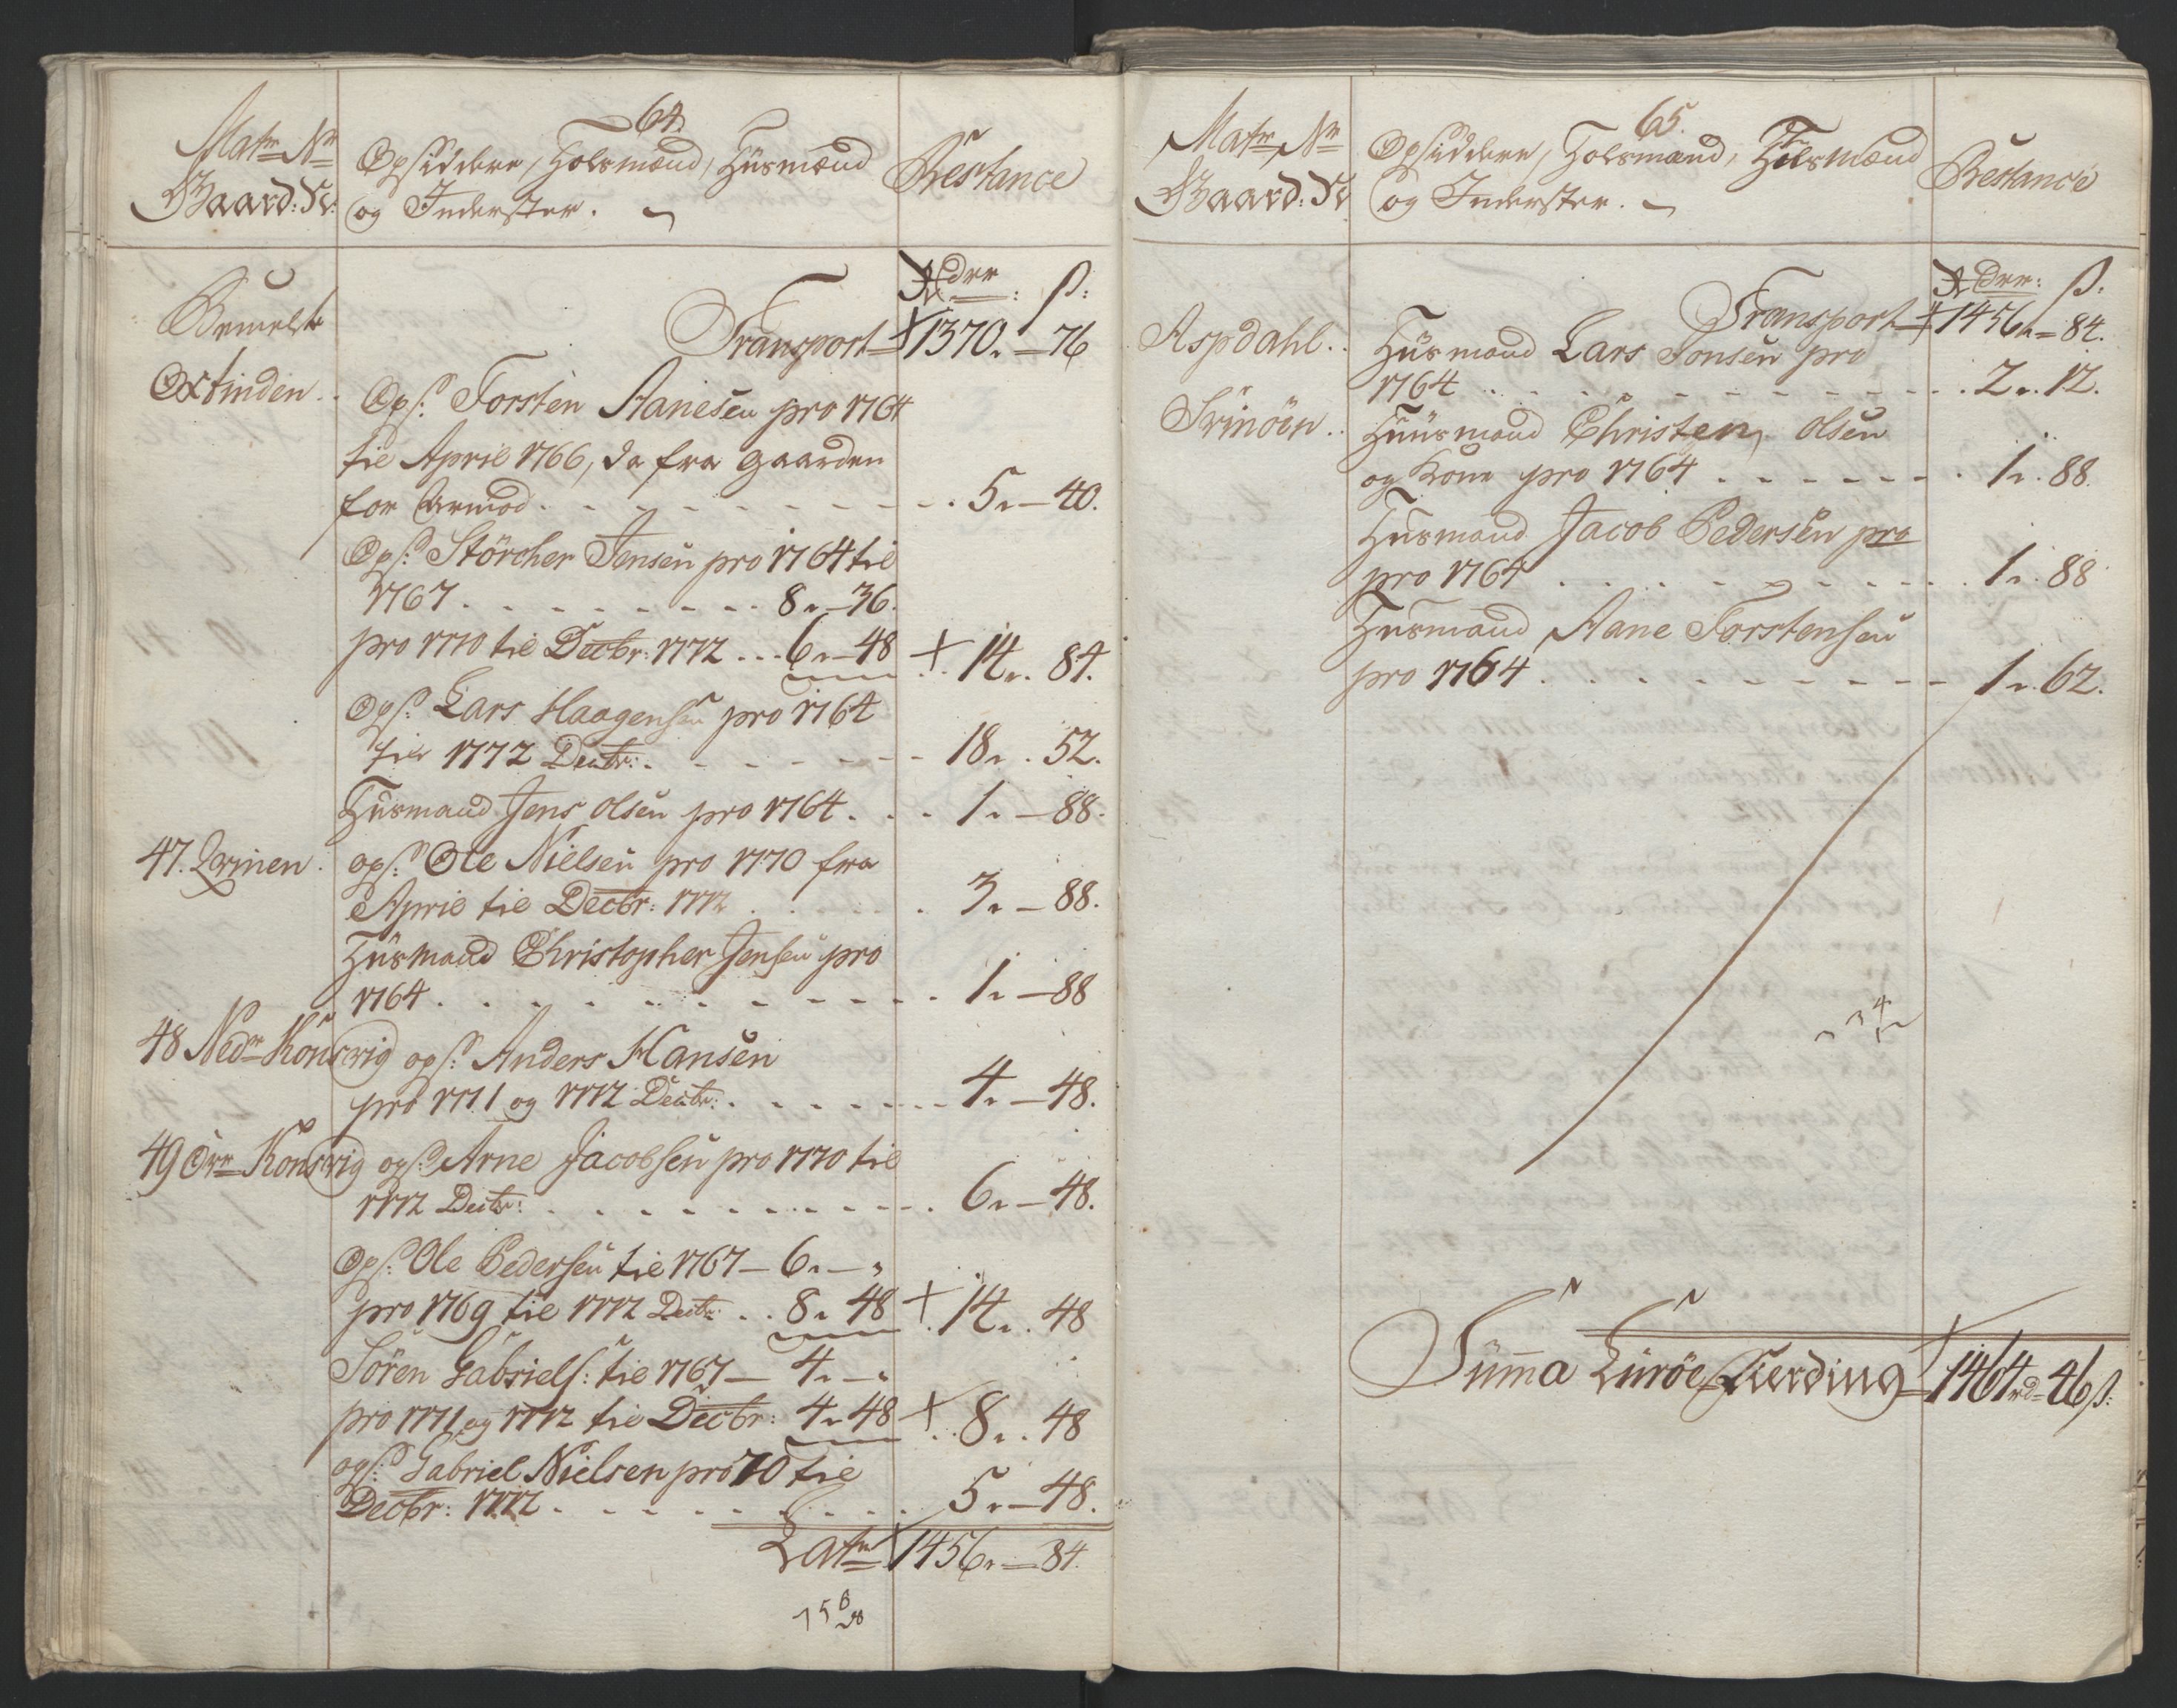 64.
Matr Nr
Gaard: Nr:
Opsiddere, Holsmænd, Huusmænd
og Inderster.
Restance
Bemelte
Rdlr: ß:
Transport 1370. 76
Oxtinden.
Ops: Torsten Aanesen pro 1764
til April 1766, da fra gaarden
for Armod. 5. 40.
Ops: Störcher Jensen pro 1764 til
1767. 8. 36.
pro 1770 til Decbr: 1772 6. 48 14. 84.
Ops: Lars Haagensen pro 1764
til 1772 Decbr: 18. 52.
Huusmand Jens Olsen pro 1764. 1. 88.
47. Qvinen. ops: Ole Nielsen pro 1770 fra
April til Decbr: 1772 3. 88.
Huusmand Christopher Jensen pro
1764. 1. 88
48 Nedr Konsvig ops: Anders Hansen
pro 1771 og 1772 Decbr: 4. 48.
49 Övr Konsvig ops: Arne Jacobsen pro 1770 til
1772 Decbr: 6. 48.
Ops: Ole Pedersen til 1767 6. "
pro 1769 til 1772 Decbr: 8. 48 14. 48
Sören Gabriels: til 1767 4. "
pro 1771 og 1772 til Decbr: 4. 48 8. 48
ops: Gabriel Nielsen pro 70 til
Decbr: 1772. 5. 48.
Latr 1456. 84.
65.
Matr Nr
Gaard: Nr
Opsiddere, Holsmænd, Huusmænd
og Inderster.
Restance
Rdlr: ß:
Transport 1456. 84.
Aspdahl. Huusmand Lars Tonsen pro
1764 2. 12.
Svinöen. Huusmand Christen Olsen
og Kone pro 1764 1. 88.
Huusmand Jacob Pedersen pro
pro 1764 1. 88
Huusmand Aane Torstensen
pro 1764. 1. 62.
Summa Luröe Fierding 1464 rd 46 ß: